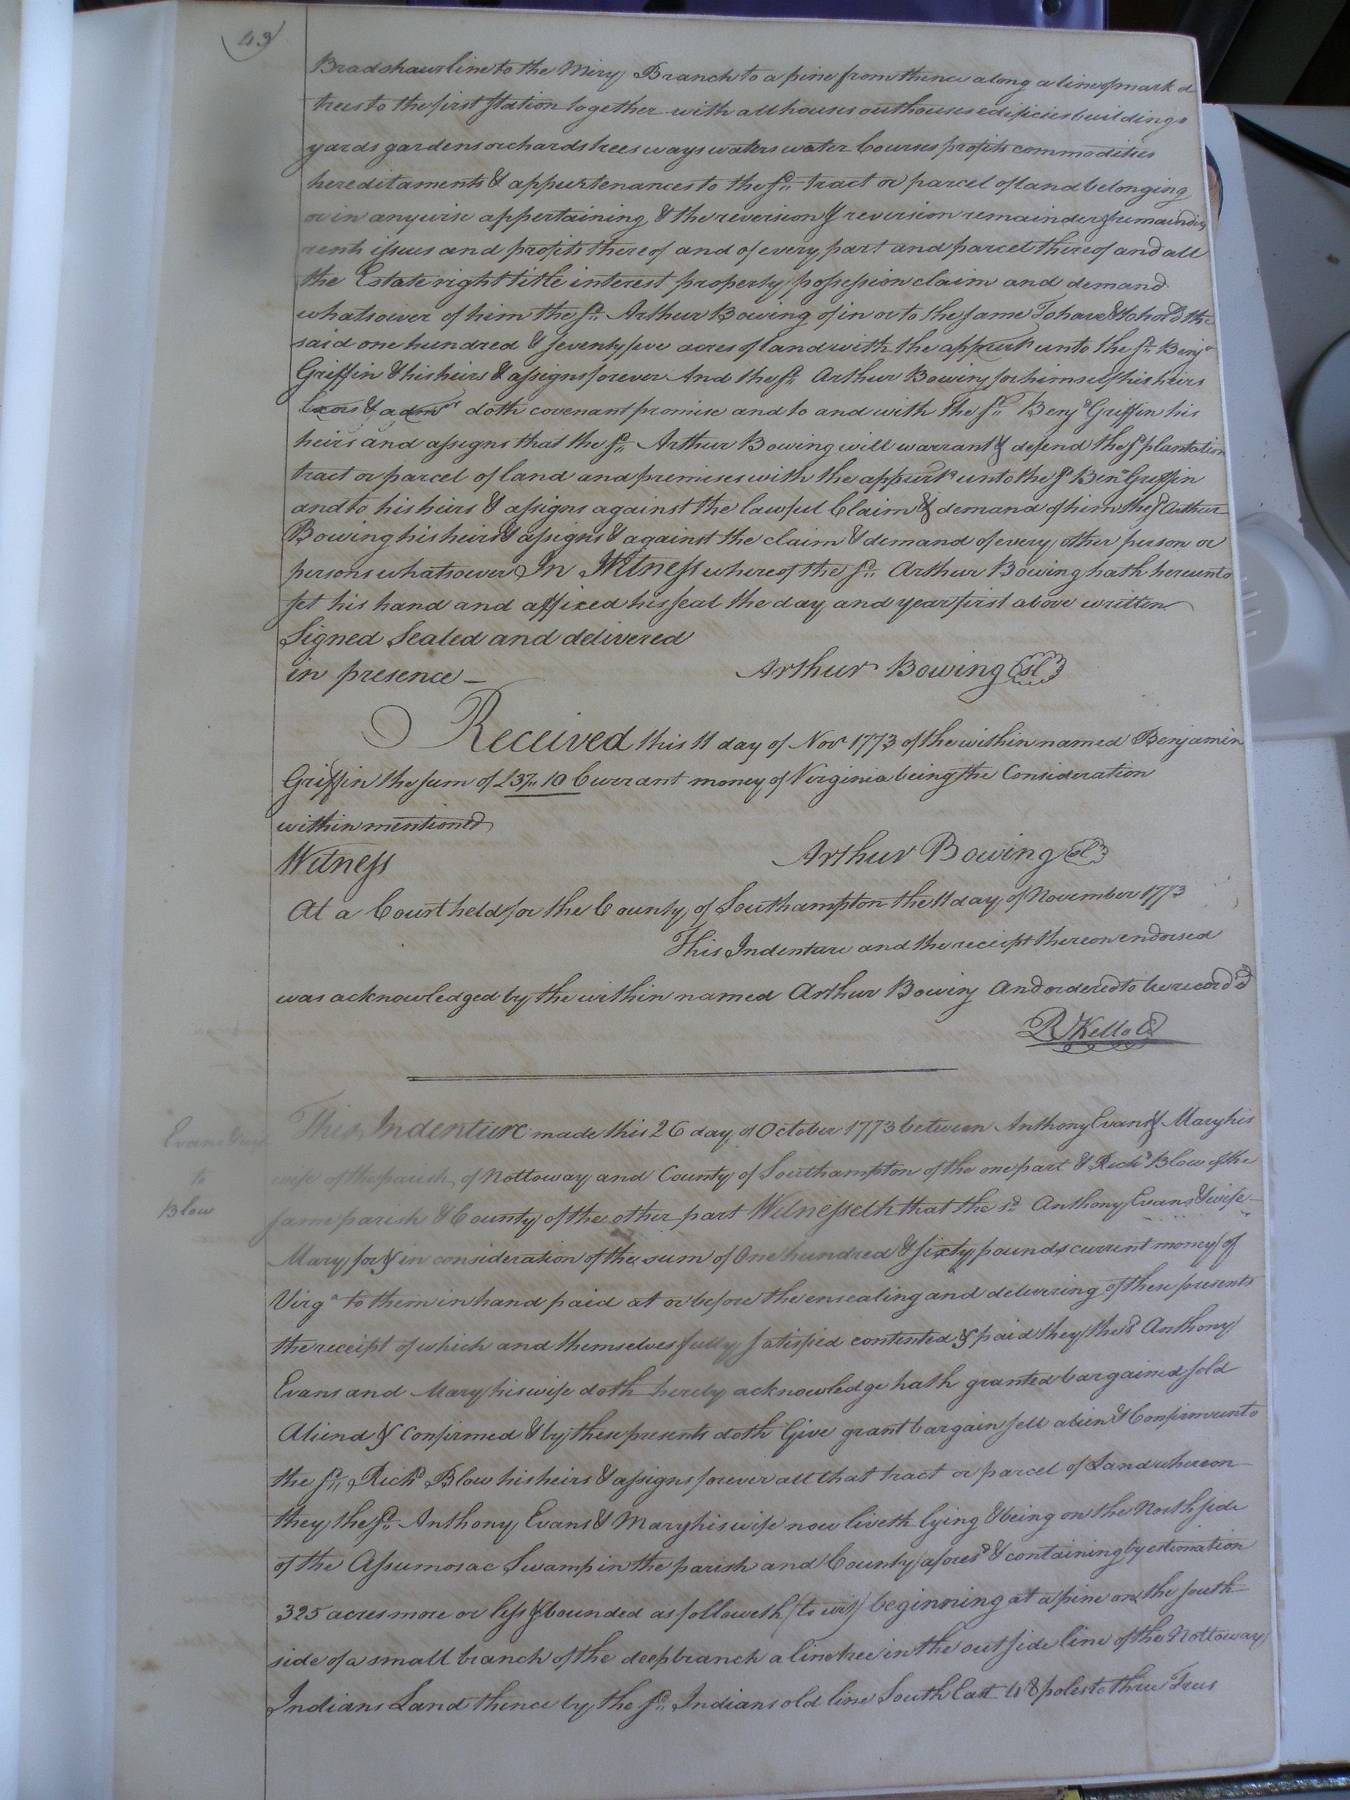 43
Bradshaws line to the Miry Branch to a pine from thence along a line of mark d
trees to the first station together with all houses outhouses edificies buildings
yards gardens orchards trees ways waters water Courses profits commodities
hereditaments & appurtenances to the sd. tract or parcel of land belonging
or in anywise appertaining, & the reversion & reversion remainder & remainders
rents issues and profits thereof and of every part and parcel thereof and all
the Estate right title interest property possession claim and demand
whatsoever of him the sd. Arthur Bowing of in or to the same To have & to hold the
said one hundred & seventy five acres of land with the appurts unto the sd. Benja
Griffin & his heirs & assigns forever And the sd. Arthur Bowing for himself his heirs
Exors & admrs doth covenant promise and to and with the sd. Benja Griffin his
heirs and assigns that the sd. Arthur Bowing will warrant & defend the sd plantation
tract or parcel of land and premises with the appurts unto the sd Bena Griffin
and to his heirs & assigns against the lawful Claim & demand of him the sd Arthur
Bowing his heirs & assigns & against the claim & demand of every other person or
persons whatsoever In Witness whereof the sd. Arthur Bowing hath hereunto
set his hand and affixed his seal the day and year first above written
Signed Sealed and delivered
in presence – Arthur Bowing sl
Received this 11 day of Novr 1773 of the within named Benjamin
Griffin the sum of £37,, 10 Currant money of Virginia being the Consideration
within mentioned
Witness Arthur Bowing sl
At a Court held for the County of Southampton the 11 day of November 1773
This Indenture and the receipt thereon endorsed
was acknowledged by the within named Arthur Bowing And ordered to be record'd
R Kello C
This Indenture made this 26 day of October 1773 between Anthony Evans & Mary his
Evans
to
Blow
wife of the parish of Nottoway and County of Southampton of the one part & Richd Blow of the
same parish & County of the other part Witnesseth that the sd. Anthony Evans & wife
Mary for & in consideration of the sum of One hundred & sixty pounds current money of
Virga to them in hand paid at or before the ensealing and delivering of these presents
the receipt of which and themselves fully satisfied contented & paid they the sd Anthony
Evans and Mary his wife doth hereby acknowledge hath granted bargained sold
Aliend & Confirmed & by these presents doth Give grant bargain sell alien & Confirm unto
the sd. Richd Blow his heirs & assigns forever all that tract or parcel of Land whereon
they the sd. Anthony Evans & Mary his wife now liveth lying & being on the North side
of the Assumosac Swamp in the parish and County aforesd & containing by estimation
325 acres more or less & bounded as followeth (to wit) beginning at a pine on the south
side of a small branch of the deep branch a line tree in the out side line of the Nottoway
Indians Land thence by the sd. Indians old line South East 48 poles to three Trees